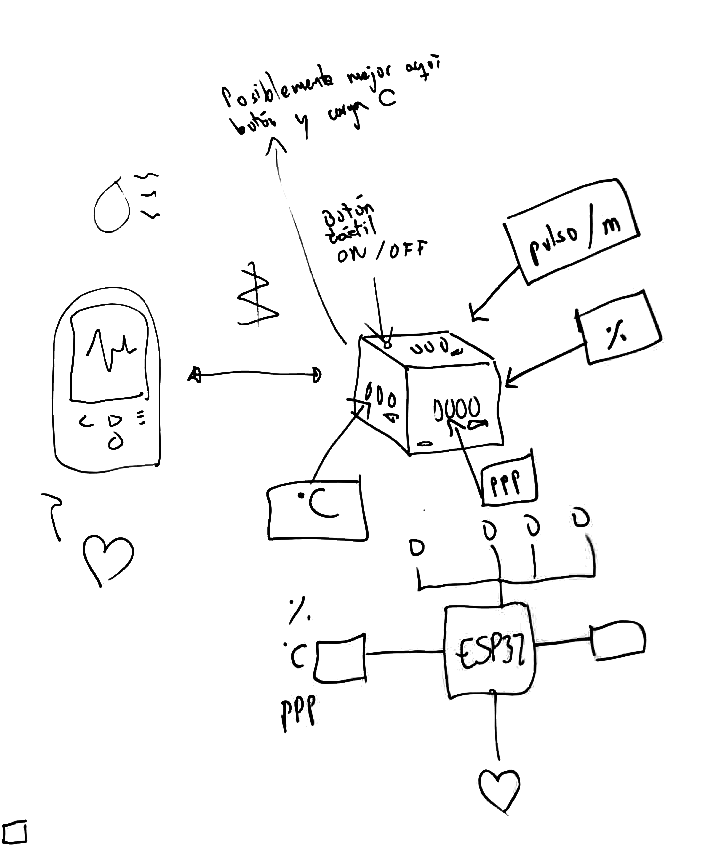 Posiblemente mejor aquí
botón y carga C
Botón
táctil
ON / OFF
pulso/m
%
000
000
0000
°C
PPP
%
°C
PPP
ESP32